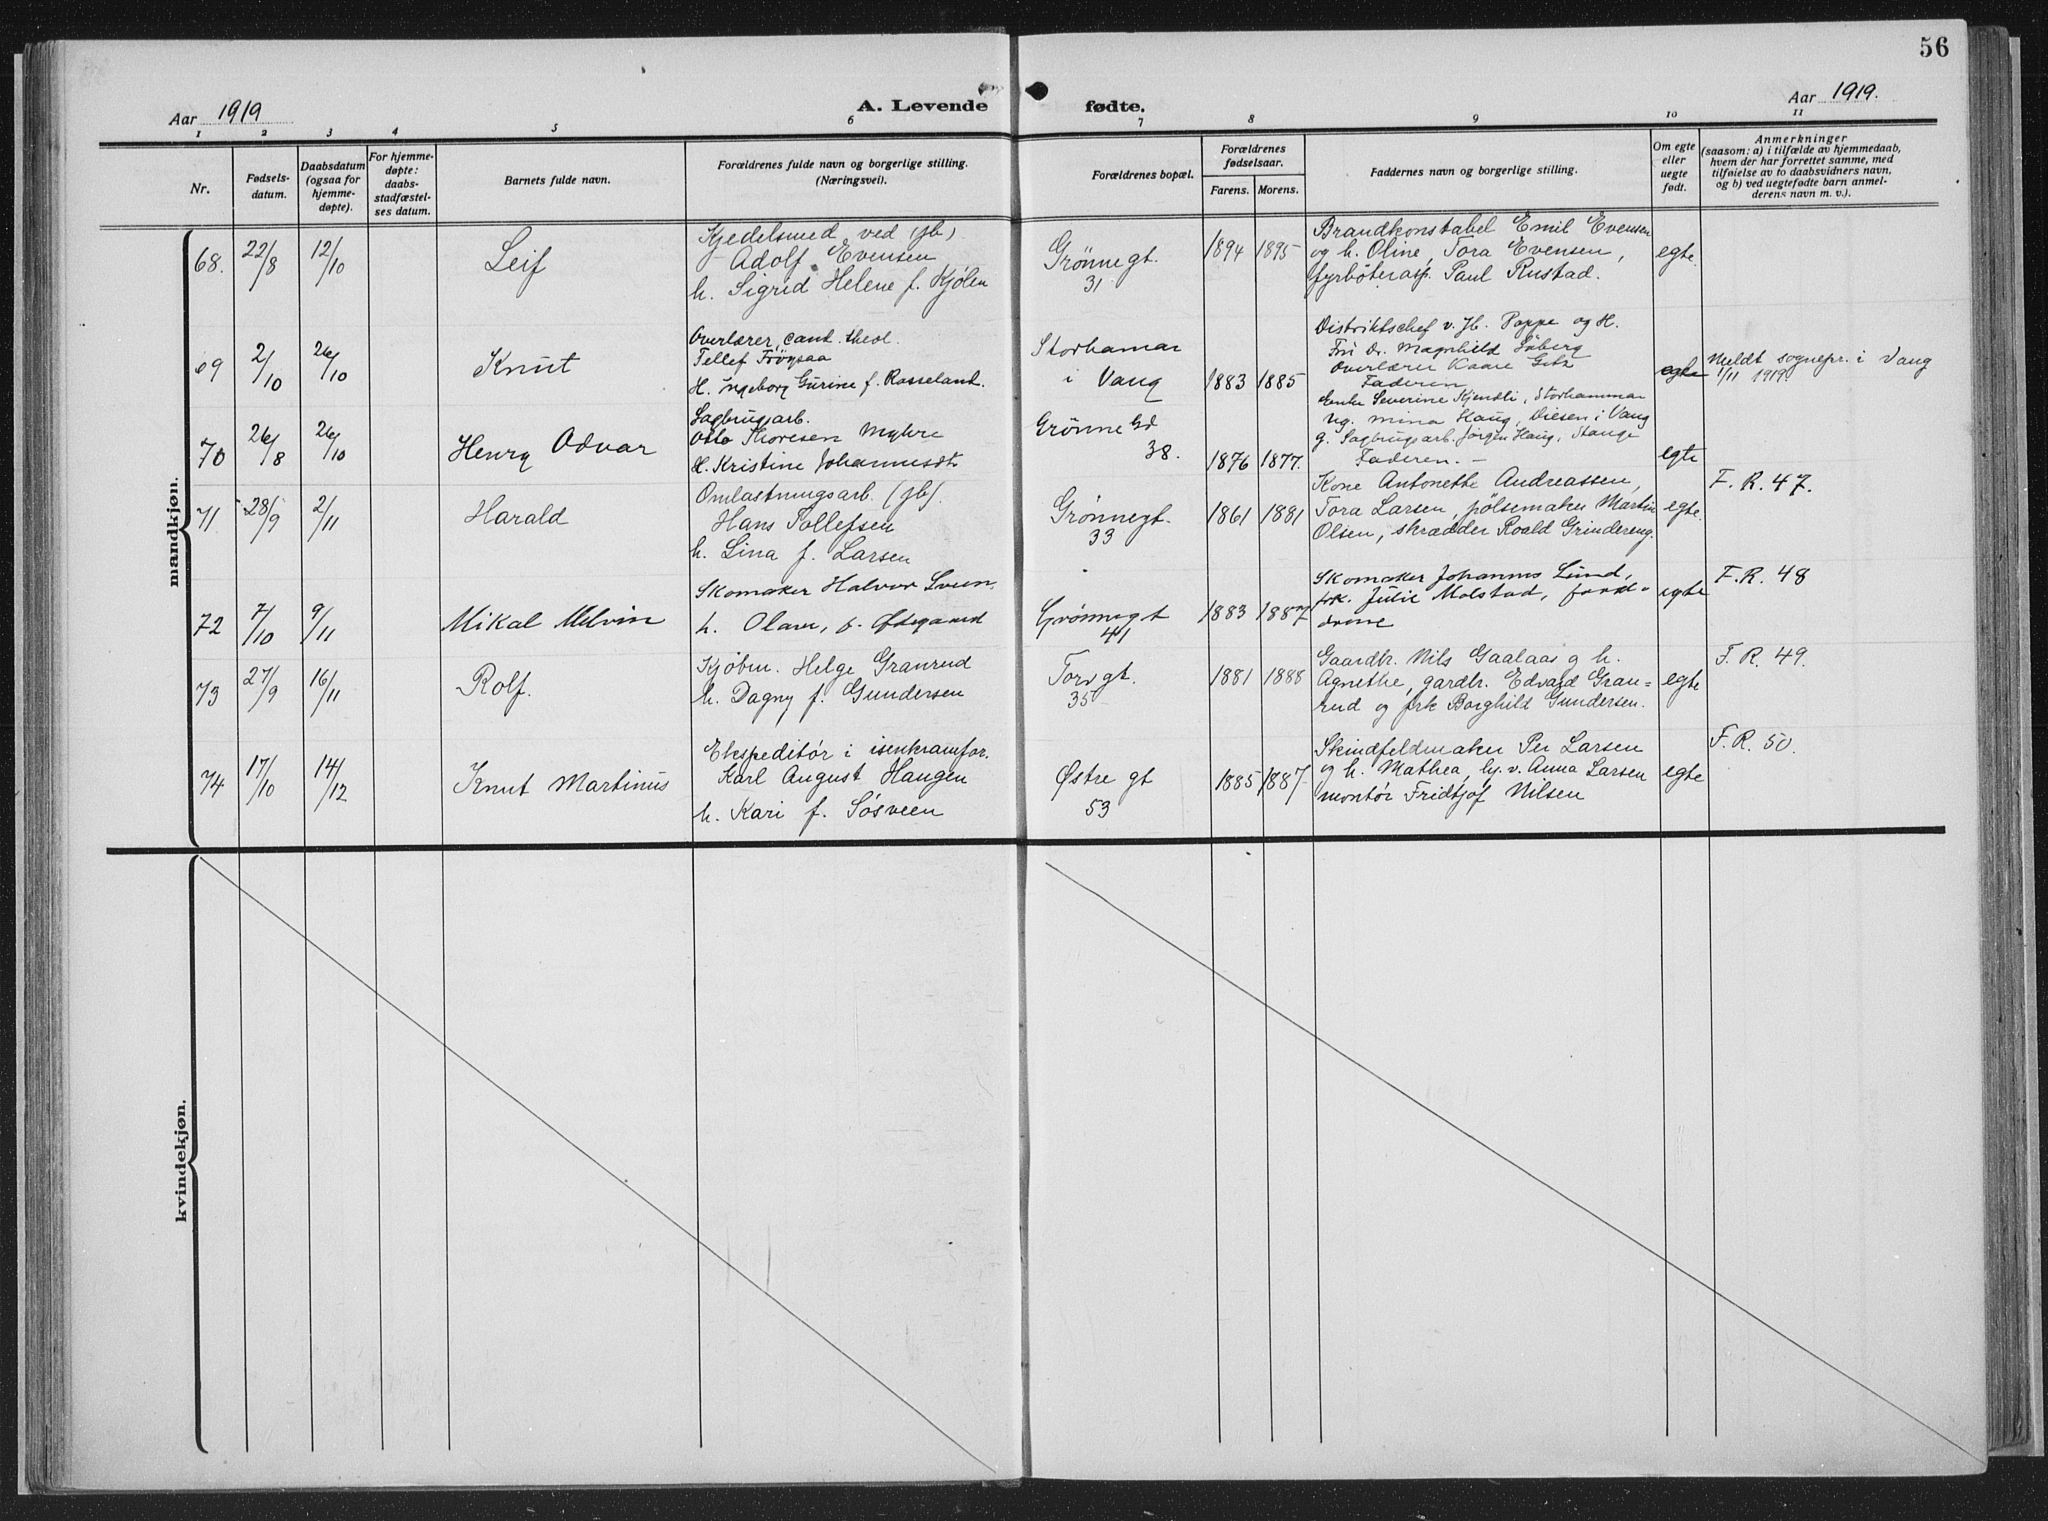 56
Aar 1919
A. Levende fødte.
Aar 1919.
1 2 3 4 5 6 7 8 9 10 11
Nr.
Fødsels-
datum.
Daabsdatum
(ogsaa for
hjemme-
døpte).
For hjemme-
døpte:
daabs-
stadfæstel-
ses datum.
Barnets fulde navn.
Forældrenes fulde navn og borgerlige stilling.
(Næringsvei).
Forældrenes bopæl.
Forældrenes
fødselsaar.
Farens. Morens.
Faddernes navn og borgerlige stilling.
Om egte
eller
uegte
født.
Anmerkninger
(saasom: a) i tilfælde av hjemmedaab,
hvem der har forrettet samme, med
tilføielse av to daabsvidners navn,
og b) ved uegtefødte barn anmel-
derens navn m. v.).
mandkjøn.
68. 22/8 12/10 Leif
Kjedelsmed ved (jb)
Adolf Evensen
h. Sigrid Helene f. Kjölen
Grönnegt.
31
1894 1895
Brandkonstabel Emil Evensen
og h. Oline, Tora Evensen,
fyrböterasp. Paul Rustad.
egte.
69 2/10 26/10 Knut
Overlærer, cand. theol.
Tellef Frögsaa
H. Ingeborg Gurine f. Rosseland.
Storhamar
i Vang
1883 1885
Distriktschef v. Jb. Poppe og H.
Fru Dr. Magnhild
Overlærer Kaare
Faderen
egte
Meldt sognepr. i Vang
1/11 1919.
70 26/8 26/10 Henry Odvar
Sagbrugsarb.
Otto Thoresen Myhre
H. Kristine Johannesdt.
Grönne Gd
38.
1876 1877.
Enke Severine Kjendli, Storhammar
Ug. Mina Haug, Diesen i Vang
g. Sagbrugsarb. Jörgen Haug, Stange
Faderen. -
egte
71. 28/9 2/11 Harald
Omlastningsarb. (jb).
Hans Tollefsen
h. Lina f. Larsen
Grönnegt.
33
1861 1881
Kone Antonette Andreassen,
Tora Larsen, pölsemaker Martin
Olsen, skrædder Roald Grindereng.
egte.
F. R. 47.
72 7/10 9/11 Mikal Melvin
Skomaker Halvor
h. f. Ödegaard
Grönnegt
41
1883 1887
Skomaker Johannes Lund,
frk. Julie Molstad,
egte
F. R. 48
73 27/9 16/11 Rolf.
Kjöbm. Helge Granrud
h. Dagny f. Gundersen
Torvgt.
35
1881 1888
Gaardbr. Nils Gaalaas g h.
Agnethe, gardbr. Edvard Gran=
rud og frk Borghild Gundersen.
egte
F. R. 49.
74 17/10 14/12 Knut Martinus
Ekspeditör i isenkramfor.
Karl August Haugen
h. Kari f. Sösveen
Østre gt
53
1885 1887
Skindfeldmaker Per Larsen
og h. Mathea, hj. v. Anna Larsen
montör Fridtjof Nilsen
egte
F. R. 50.
kvindekjøn.